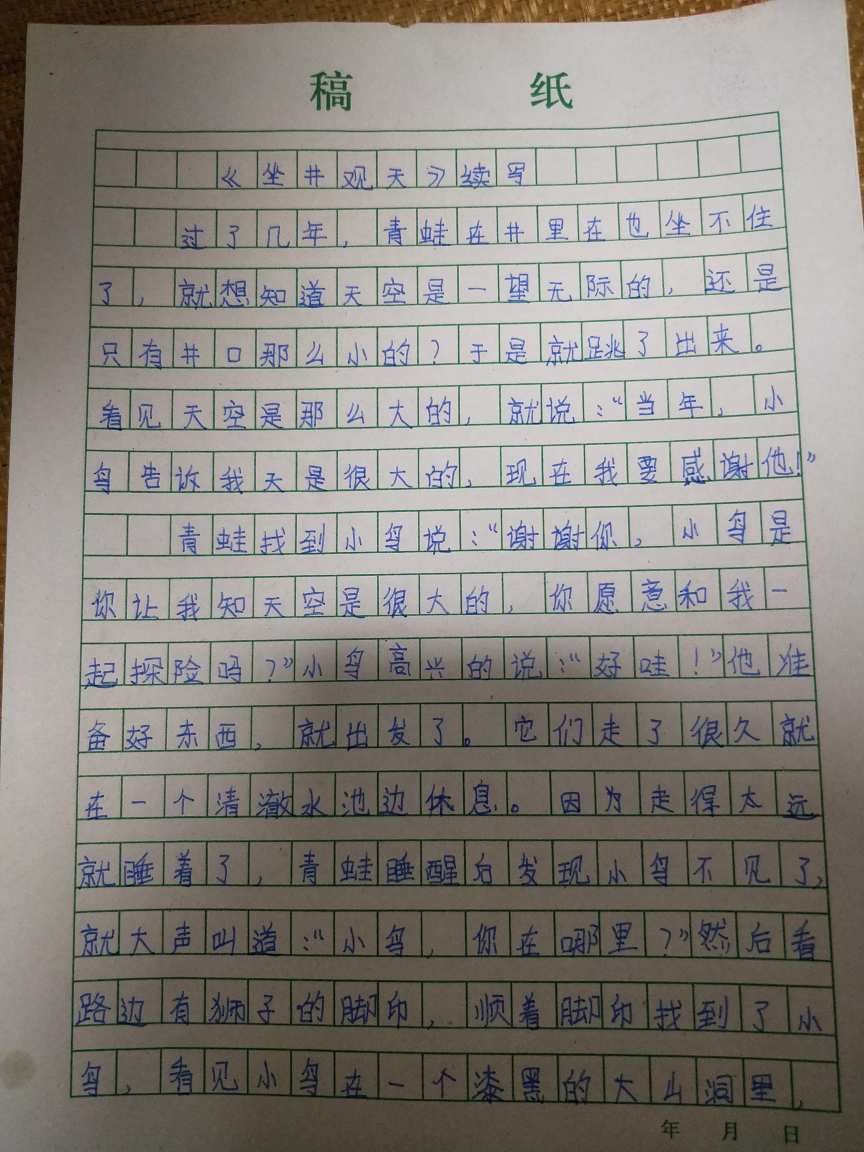 稿 纸
《坐井观天》续写
过了几年，青蛙在井里在也坐不住
了，就想知道天空是一望无际的，还是
只有井口那么小的？于是就跳了出来。
看见天空是那么大的，就说：“当年，小
鸟告诉我天是很大的，现在我要感谢他！”
青蛙找到小鸟说：“谢谢你，小鸟是
你让我知天空是很大的，你愿意和我一
起探险吗？”小鸟高兴的说：“好哇！”他准
备好东西，就出发了。它们走了很久就
在一个清澈水池边休息。因为走得太远
就睡着了，青蛙睡醒后发现小鸟不见了，
就大声叫道：“小鸟，你在哪里？”然后看
路边有狮子的脚印，顺着脚印找到了小
鸟，看见小鸟在一个漆黑的大山洞里，
年 月 日